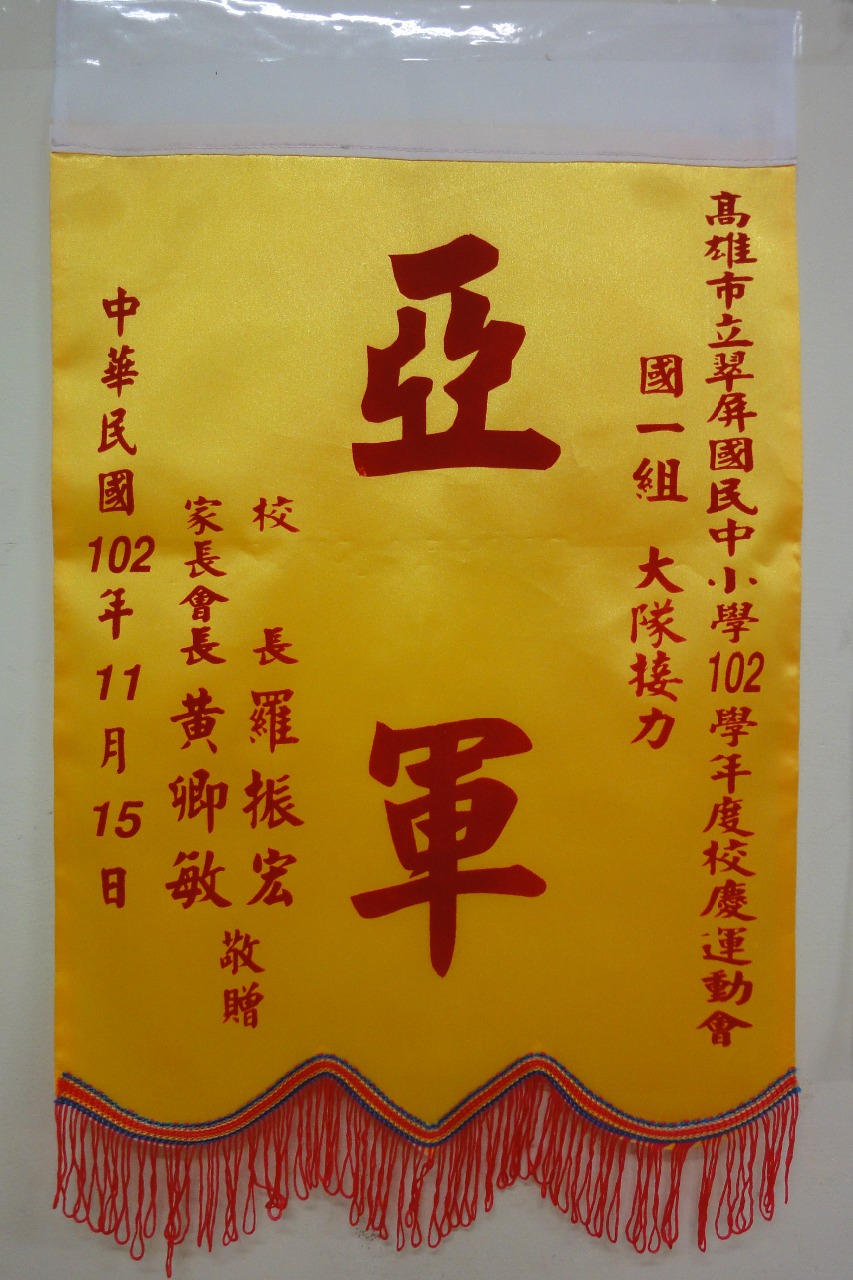 高雄市立翠屏國民中小學102學年度校慶運動會
國一組 大隊接力
亞軍
校長 羅振宏
家長會長 黃卿敏
敬贈
中華民國102年11月15日